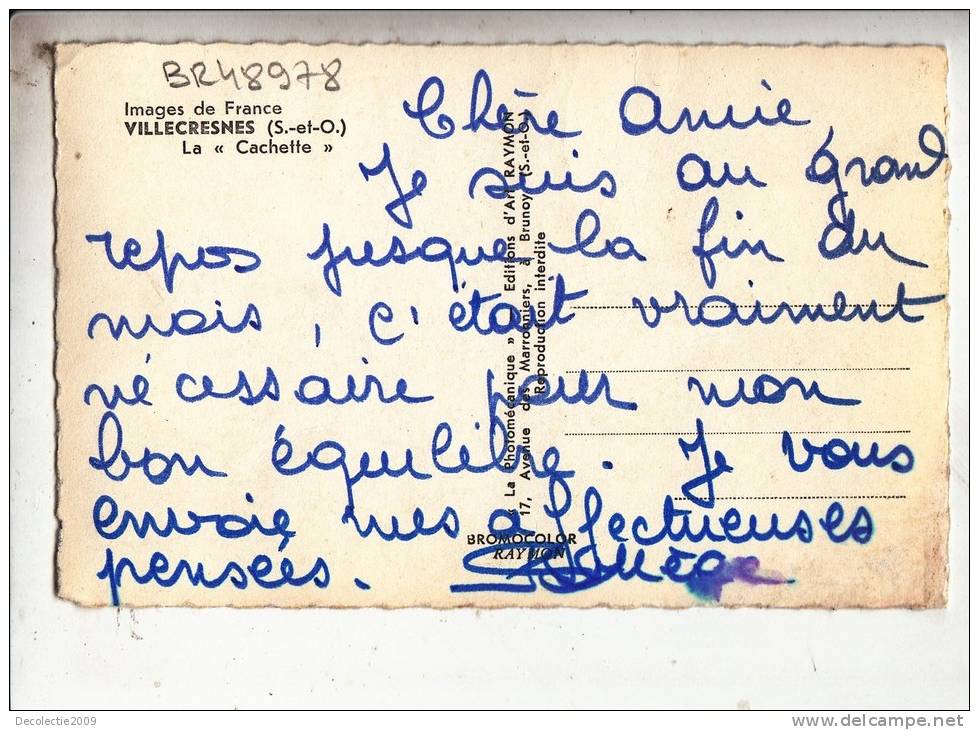 BR48978
Images de France
VILLECRESNES (S.-et-O.)
La « Cachette »
Chère Amie,
Je suis au grand
repos jusque la fin du
mois, c'était vraiment
nécessaire pour mon
bon équilibre. Je vous
envoie mes affectueuses
pensées.
« La Photomécanique » — Editions d'Art RAYMON
17, Avenue des Marronniers, à Brunoy (S.-et-O.)
Reproduction interdite
BROMOCOLOR
RAYMON
Decolectie2009
www.delcampe.net